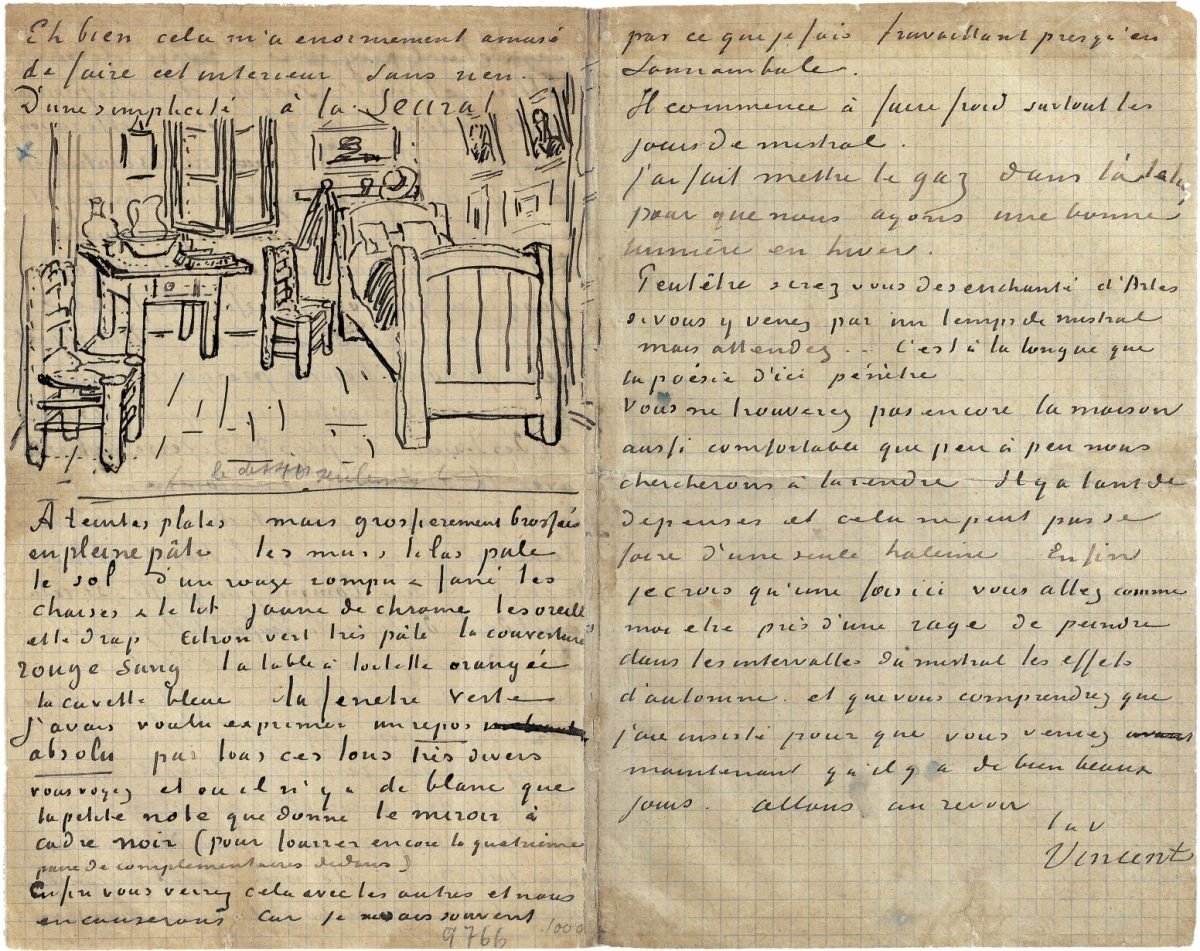 Eh bien cela m'a enormement amusé
de faire cet interieur sans rien.
D'une simplicité à la Seurat
(le dessin seulement)
A teintes plates mais grossierement brossées
en pleine pâte les murs lilas pale
le sol d'un rouge rompu & fané les
chaises & le lit jaune de chrome les oreill
et le drap citron vert très pâle la couverture
rouge sang la table à toilette orangée
la cuvette bleue la fenetre verte
j'avais voulu exprimer un repos
absolu par tous ces tons très divers
vous voyez et ou il n'y a de blanc que
la petite note que donne le miroir à
cadre noir (pour fourrer encore la quatrieme
paire de complementaires dedans)
Enfin vous verrez cela avec les autres et nous
en causerons car je ne sais souvent
9766 1000
par ce que je fais travaillant presqu'en
somnambule.
Il commence à faire froid surtout les
jours de mistral.
j'ai fait mettre le gaz dans l'atelier
pour que nous ayons une bonne
lumière en hiver.
Peutêtre serez vous desenchanté d'Arles
si vous y venez par un temps de mistral
mais attendez... C'est à la longue que
la poésie d'ici pénètre
Vous ne trouverez pas encore la maison
aussi comfortable que peu à peu nous
chercherons à la rendre Il y a tant de
depenses et cela ne peut pas se
faire d'une seule haleine Enfin
je crois qu'une fois ici vous allez comme
moi etre pris d'une rage de peindre
dans les intervalles du mistral les effets
d'automne. et que vous comprendrez que
j'aie insisté pour que vous veniez
maintenant qu'il y a de bien beaux
jours. allons au revoir
t. à v
Vincent